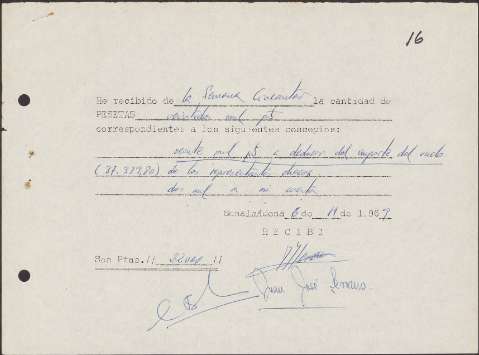 16
He recibido de la Semana Cineastas la cantidad de
PESETAS veintidos mil pts
correspondientes a los siguientes conceptos:
veinte mil pts a deducir del importe del vuelo
(37.387,80) de los representantes checos
dos mil a mi cuenta
Benalmádena 6 de 11 de 1.969
RECIBI
Son Ptas.// 22000 //
Juan José Serrano